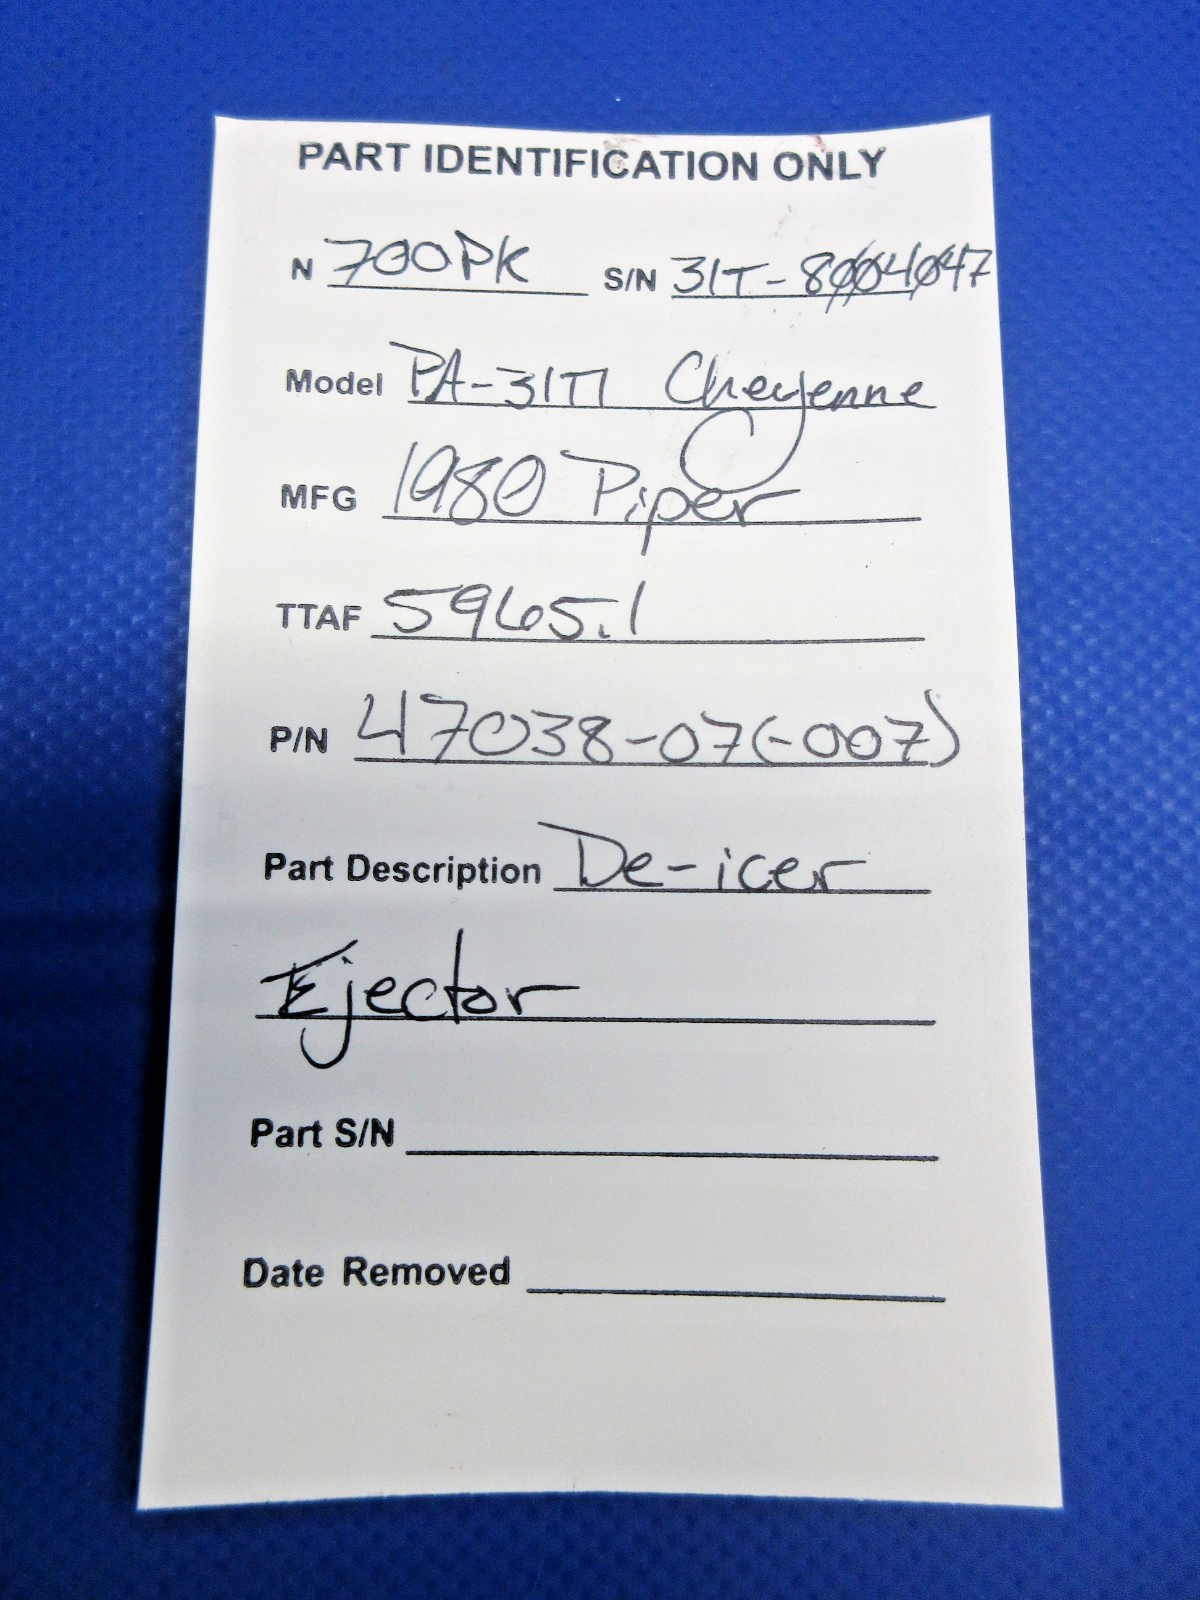 PART IDENTIFICATION ONLY
N 700PK S/N 31T-8004047
Model PA-31T1 Cheyenne
MFG 1980 Piper
TTAF 5965.1
P/N 47038-07(-007)
Part Description De-icer
Ejector
Part S/N
Date Removed